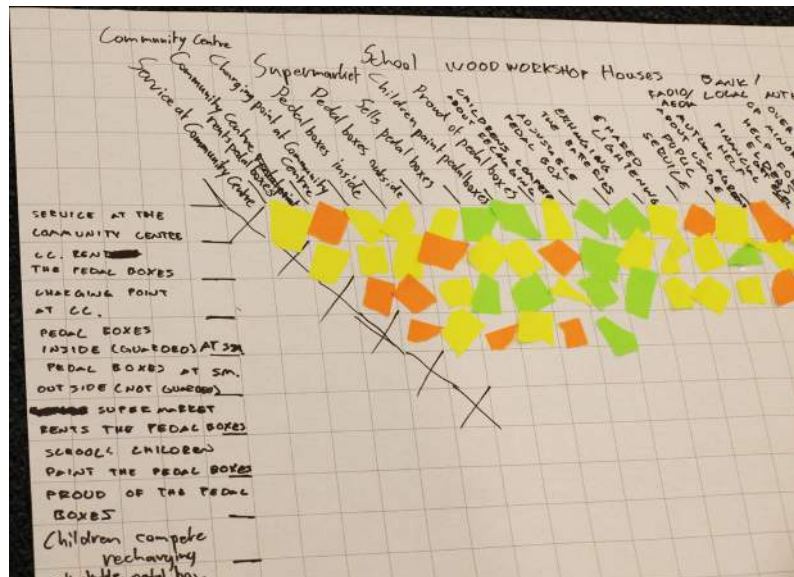 Community Centre
Supermarket
School
WOOD WORKSHOP
Houses
BANK!
Service at Community Centre
Community Centre
rents pedal boxes
Charging point at Community
Centre
Pedal boxes inside
Pedal boxes outside
Sells pedal boxes
Children paint pedal boxes
Proud of pedal boxes
CHILDREN COMPETE
ABOUT RECHARGING
ADJUSTABLE
PEDAL BOX
THE BATTERIES
SHARED
LIGHTENING
RADIO/
LOCAL
ABOUT
PUBLIC
SERVICE
FINANCIAL
HELP
SERVICE AT THE
COMMUNITY CENTRE
CC. REN
THE PEDAL BOXES
CHARGING POINT
AT CC.
PEDAL BOXES
INSIDE (GUARDED) AT SM
PEDAL BOXES AT SM.
OUTSIDE (NOT GUARDED)
SUPERMARKET
RENTS THE PEDAL BOXES
SCHOOLS CHILDREN
PAINT THE PEDAL BOXES
PROUD OF THE PEDAL
BOXES
Children compete
recharging